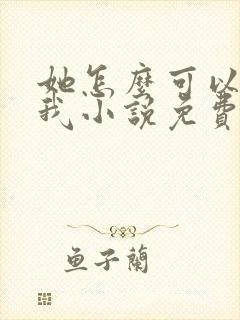 她怎麼可以
我小說免費
魚子蘭